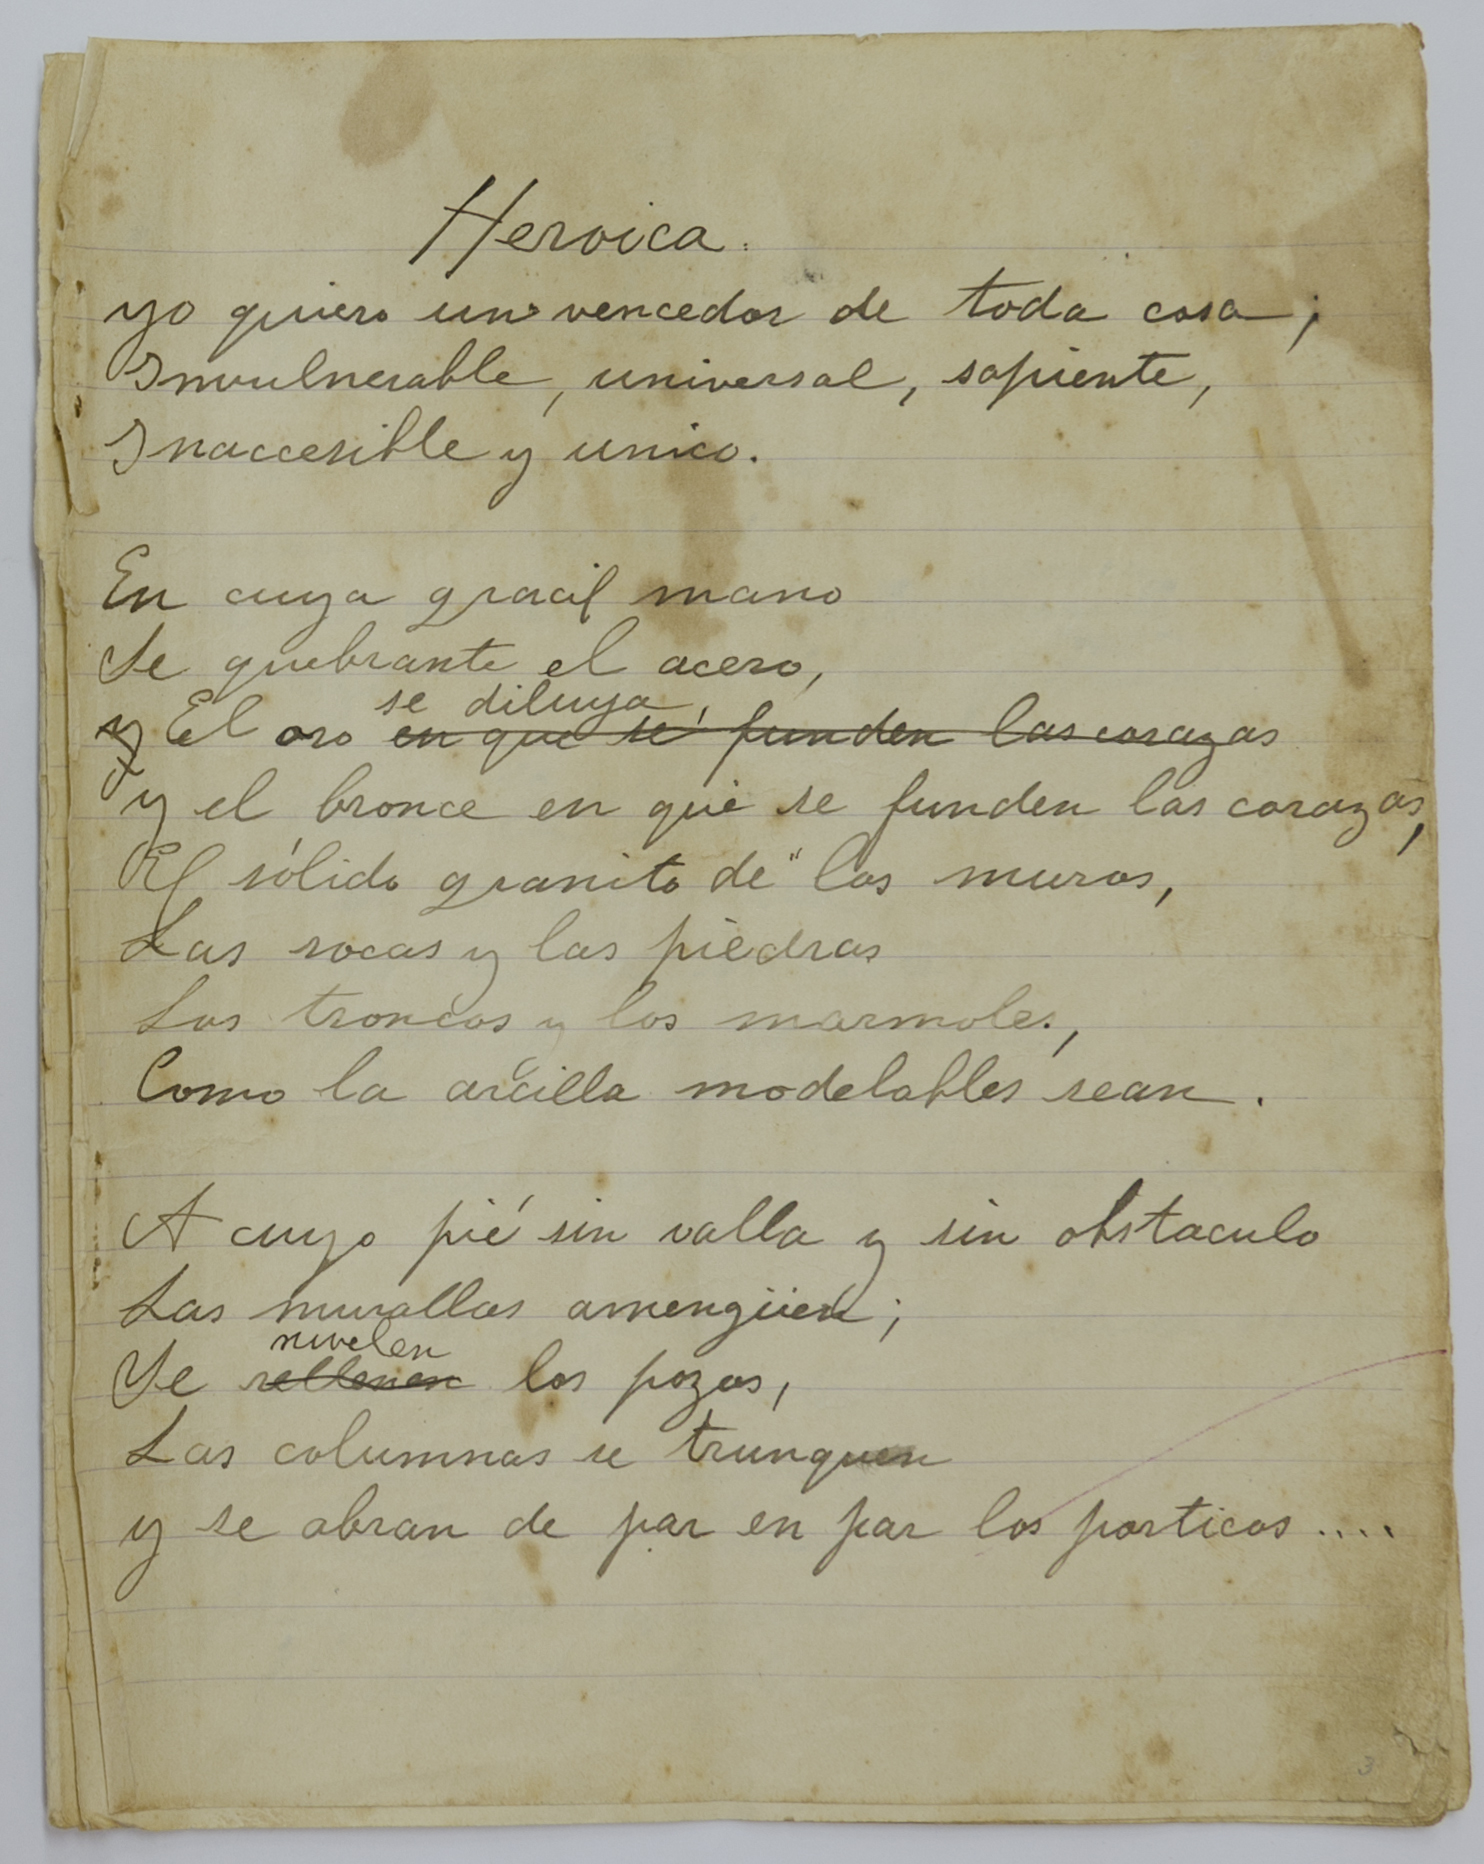 Heroica.
yo quiero un vencedor de toda cosa;
Invulnerable, universal, sapiente,
Inaccesible y unico.
En cuya gracil mano
Se quebrante el acero,
se diluya,
y El oro en que se funden las corazas
y el bronce en que se funden las corazas,
El sólido granito de los muros,
Las rocas y las piedras
Los troncos y los marmoles,
Como la arcilla modelables sean.
A cuyo pié sin valla y sin obstaculo
Las murallas amengüen;
nivelen
Se rellenen los pozos,
Las columnas se trunquen
y se abran de par en par los porticos ....
3